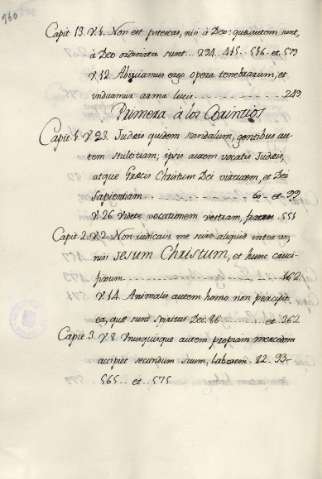 960
Capit 13. V.1. Non est potestas, nisi à Deo: quæ autem sunt,
à Deo ordinata sunt... 234. 415.. 516.. et 573
V.12. Abijciamus ergo opera tenebrarum, et
induamur arma lucis.......... 243
Primera à los Corintios
Capit. 1. V.23. Judeis quidem scandalum, gentibus au
tem stultitiam; ipsis autem vocatis Judeis,
atque Græcis Christum Dei virtutem, et Dei
sapientiam .......... et 99
V.26 Videte vocationem vestram, fratres 551
Capit. 2. V.2. Non judicavi me scire aliquid inter vos,
nisi JESUM CHRISTUM, et hunc cruci-
fixum .......... 162
V.14. Animalis autem homo non percipit
ea, quæ sunt spiritus Dei. 86 ..... et 262
Capit. 3. V.8. Unusquisque autem propriam mercedem
accipiet secundum suum laborem. 82. 93-
565.. et.. 575